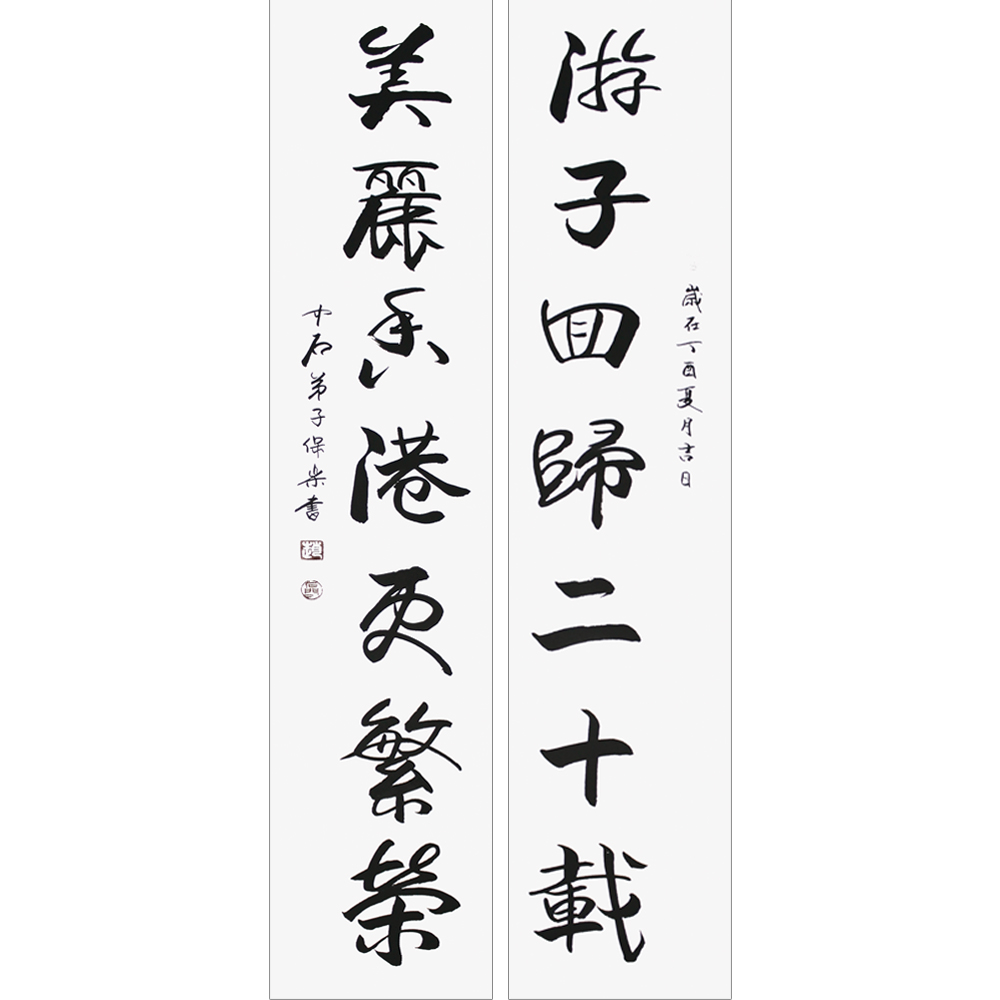 歲在丁酉夏月吉日
游子回歸二十載
美麗香港更繁榮
中石弟子保樂書
趙